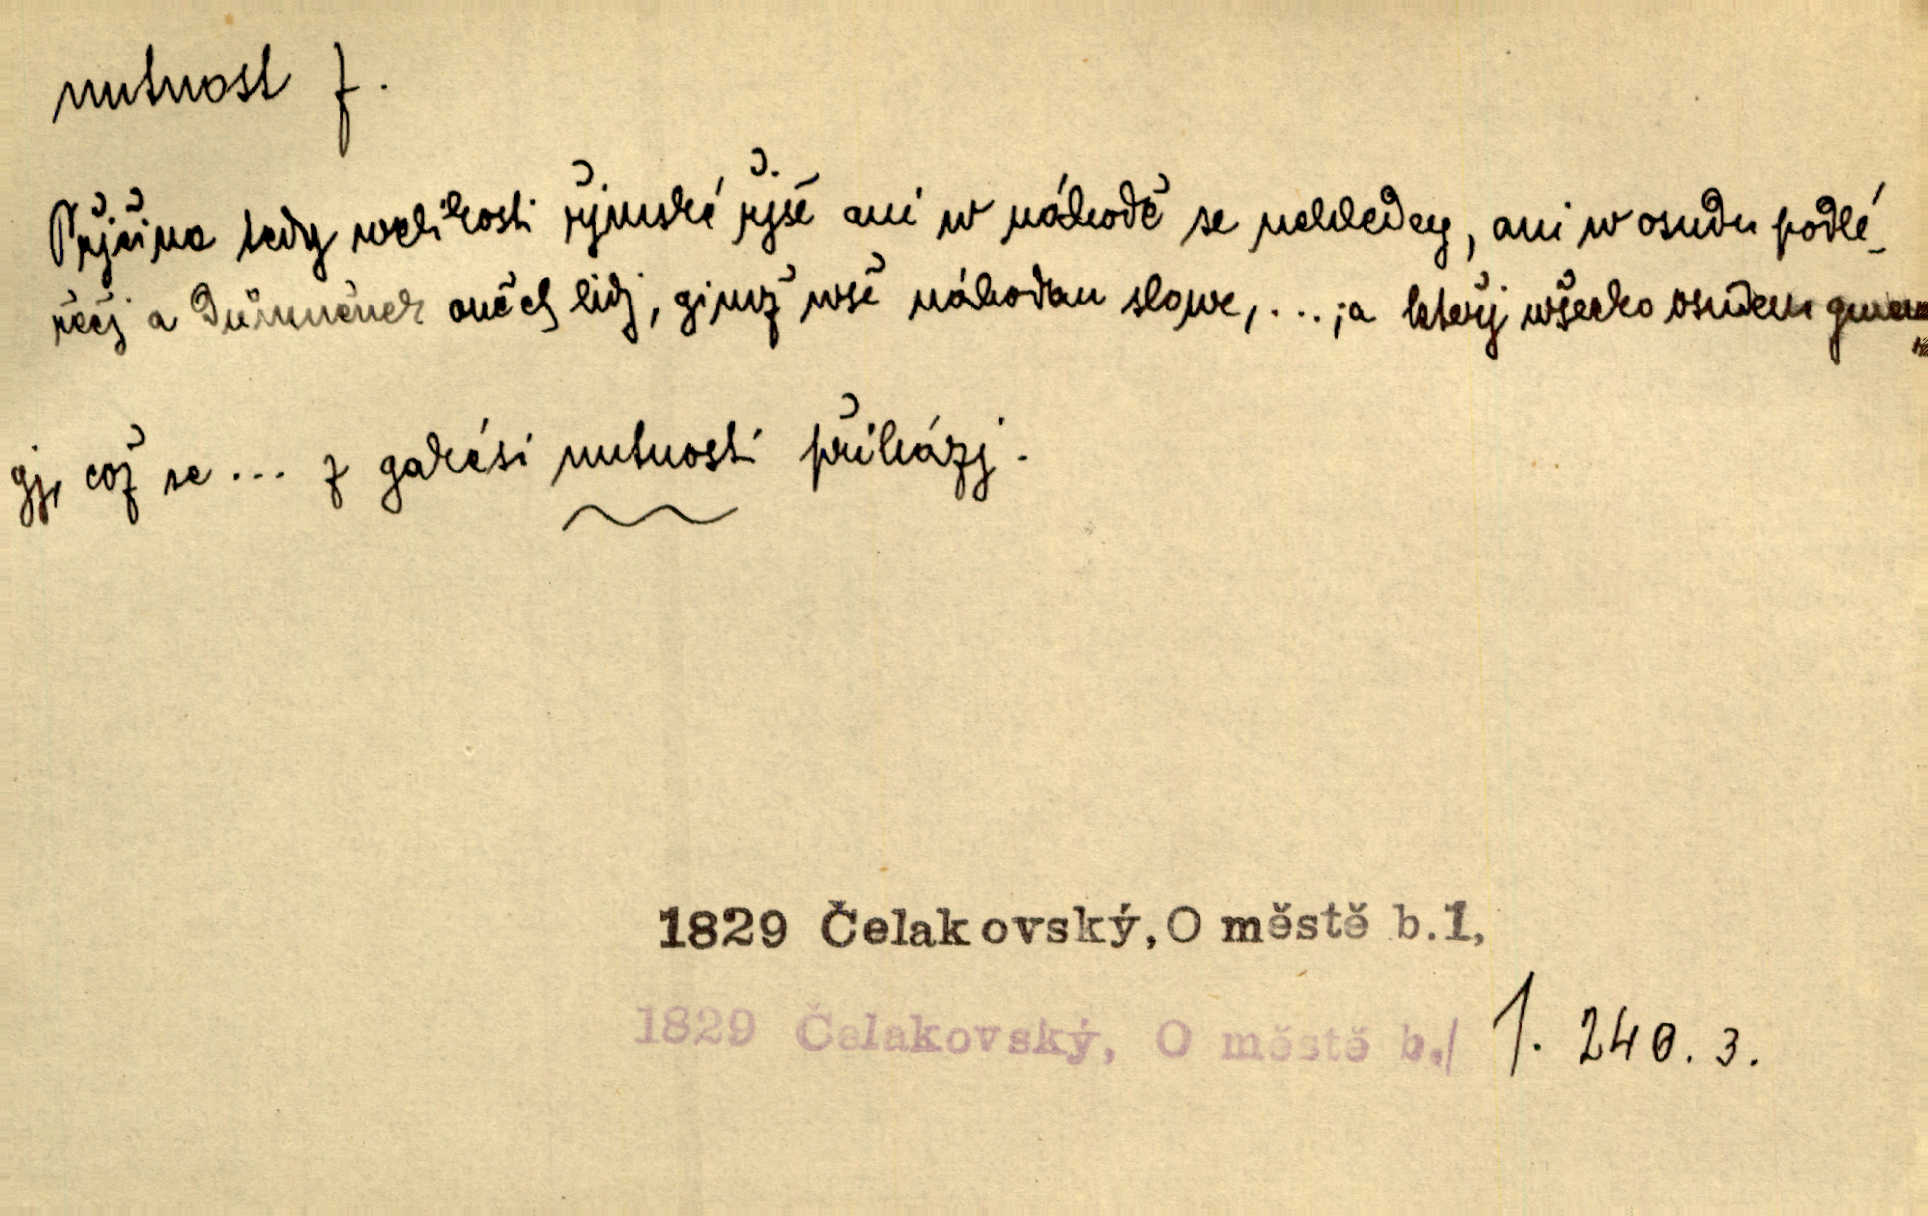 nutnost f.
Přjčina tedy welikosti řjmské řjše ani w náhodě se nehledey, ani w osudu podlé
řečj a Důmněnek oněch lidj, gimž wše náhodau slowe, ...; a kteřj wšecko osudem gmenu
gj, což se ... z gakési nutnosti přiházj.
1829 Čelakovský, O městě b.1,
1829 Čelakovský, O městě b./ 1. 240. 3.